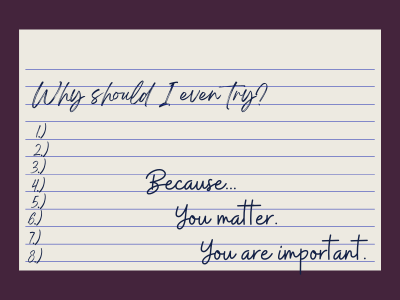 Why should I even try?
1.)
2.)
3.)
4.) Because...
5.)
6.) You matter.
7.)
8.) You are important.